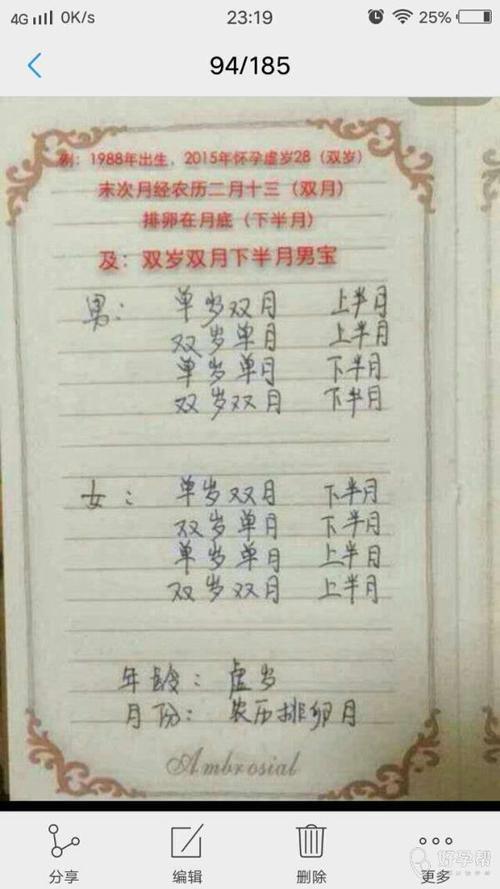 4G 0K/s 23:19 25%
94/185
例：1988年出生，2015年怀孕虚岁28（双岁）
末次月经农历二月十三（双月）
排卵在月底（下半月）
及：双岁双月下半月男宝
男： 单岁双月 上半月
双岁单月 上半月
单岁单月 下半月
双岁双月 下半月
女： 单岁双月 下半月
双岁单月 下半月
单岁单月 上半月
双岁双月 上半月
年龄：虚岁
月份：农历排卵月
Ambrosial
分享 编辑 删除 更多
好孕帮